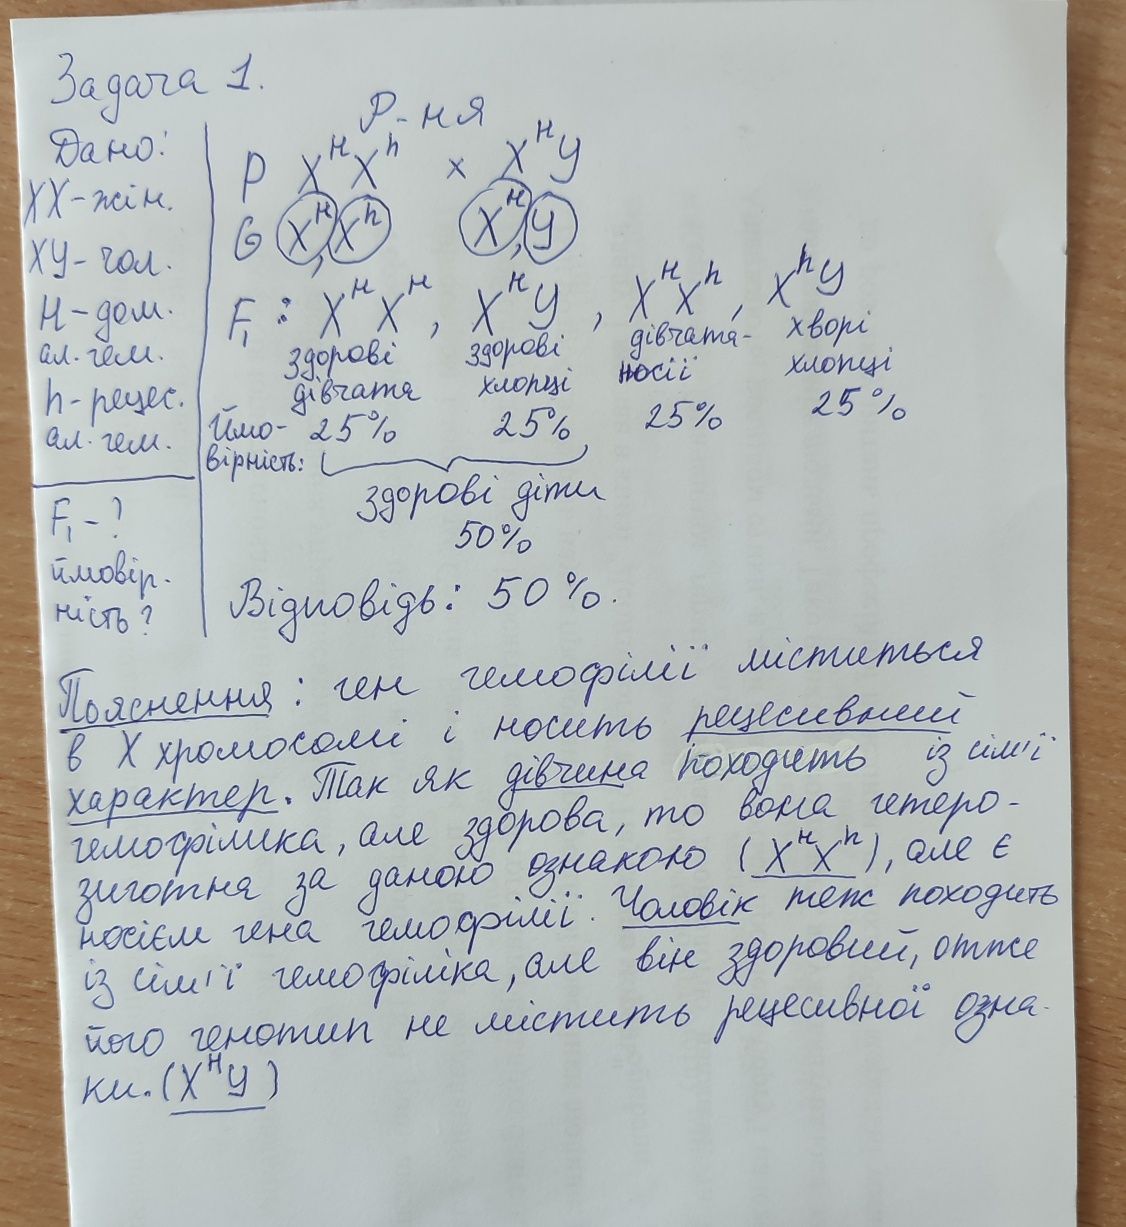 Задача 1.
Дано:
XX-жін.
XY-чол.
H-дом.
ал. гем.
h-рецес.
ал. гем.
F₁-?
ймовір-
ність?
Р-ня
P XᴴXʰ x XᴴY
G Xᴴ, Xʰ Xᴴ, Y
F₁: XᴴXᴴ, XᴴY, XᴴXʰ, XʰY
здорові дівчата здорові хлопці дівчата-носії хворі хлопці
Ймо-вірність: 25% 25% 25% 25%
здорові діти
50%
Відповідь: 50%.
Пояснення: ген гемофілії міститься
в X хромосомі і носить рецесивний
характер. Так як дівчина походить із сім'ї
гемофіліка, але здорова, то вона гетеро-
зиготна за даною ознакою (XᴴXʰ), але є
носієм гена гемофілії. Чоловік теж походить
із сім'ї гемофіліка, але він здоровий, отже
його генотип не містить рецесивної озна-
ки. (XᴴY)